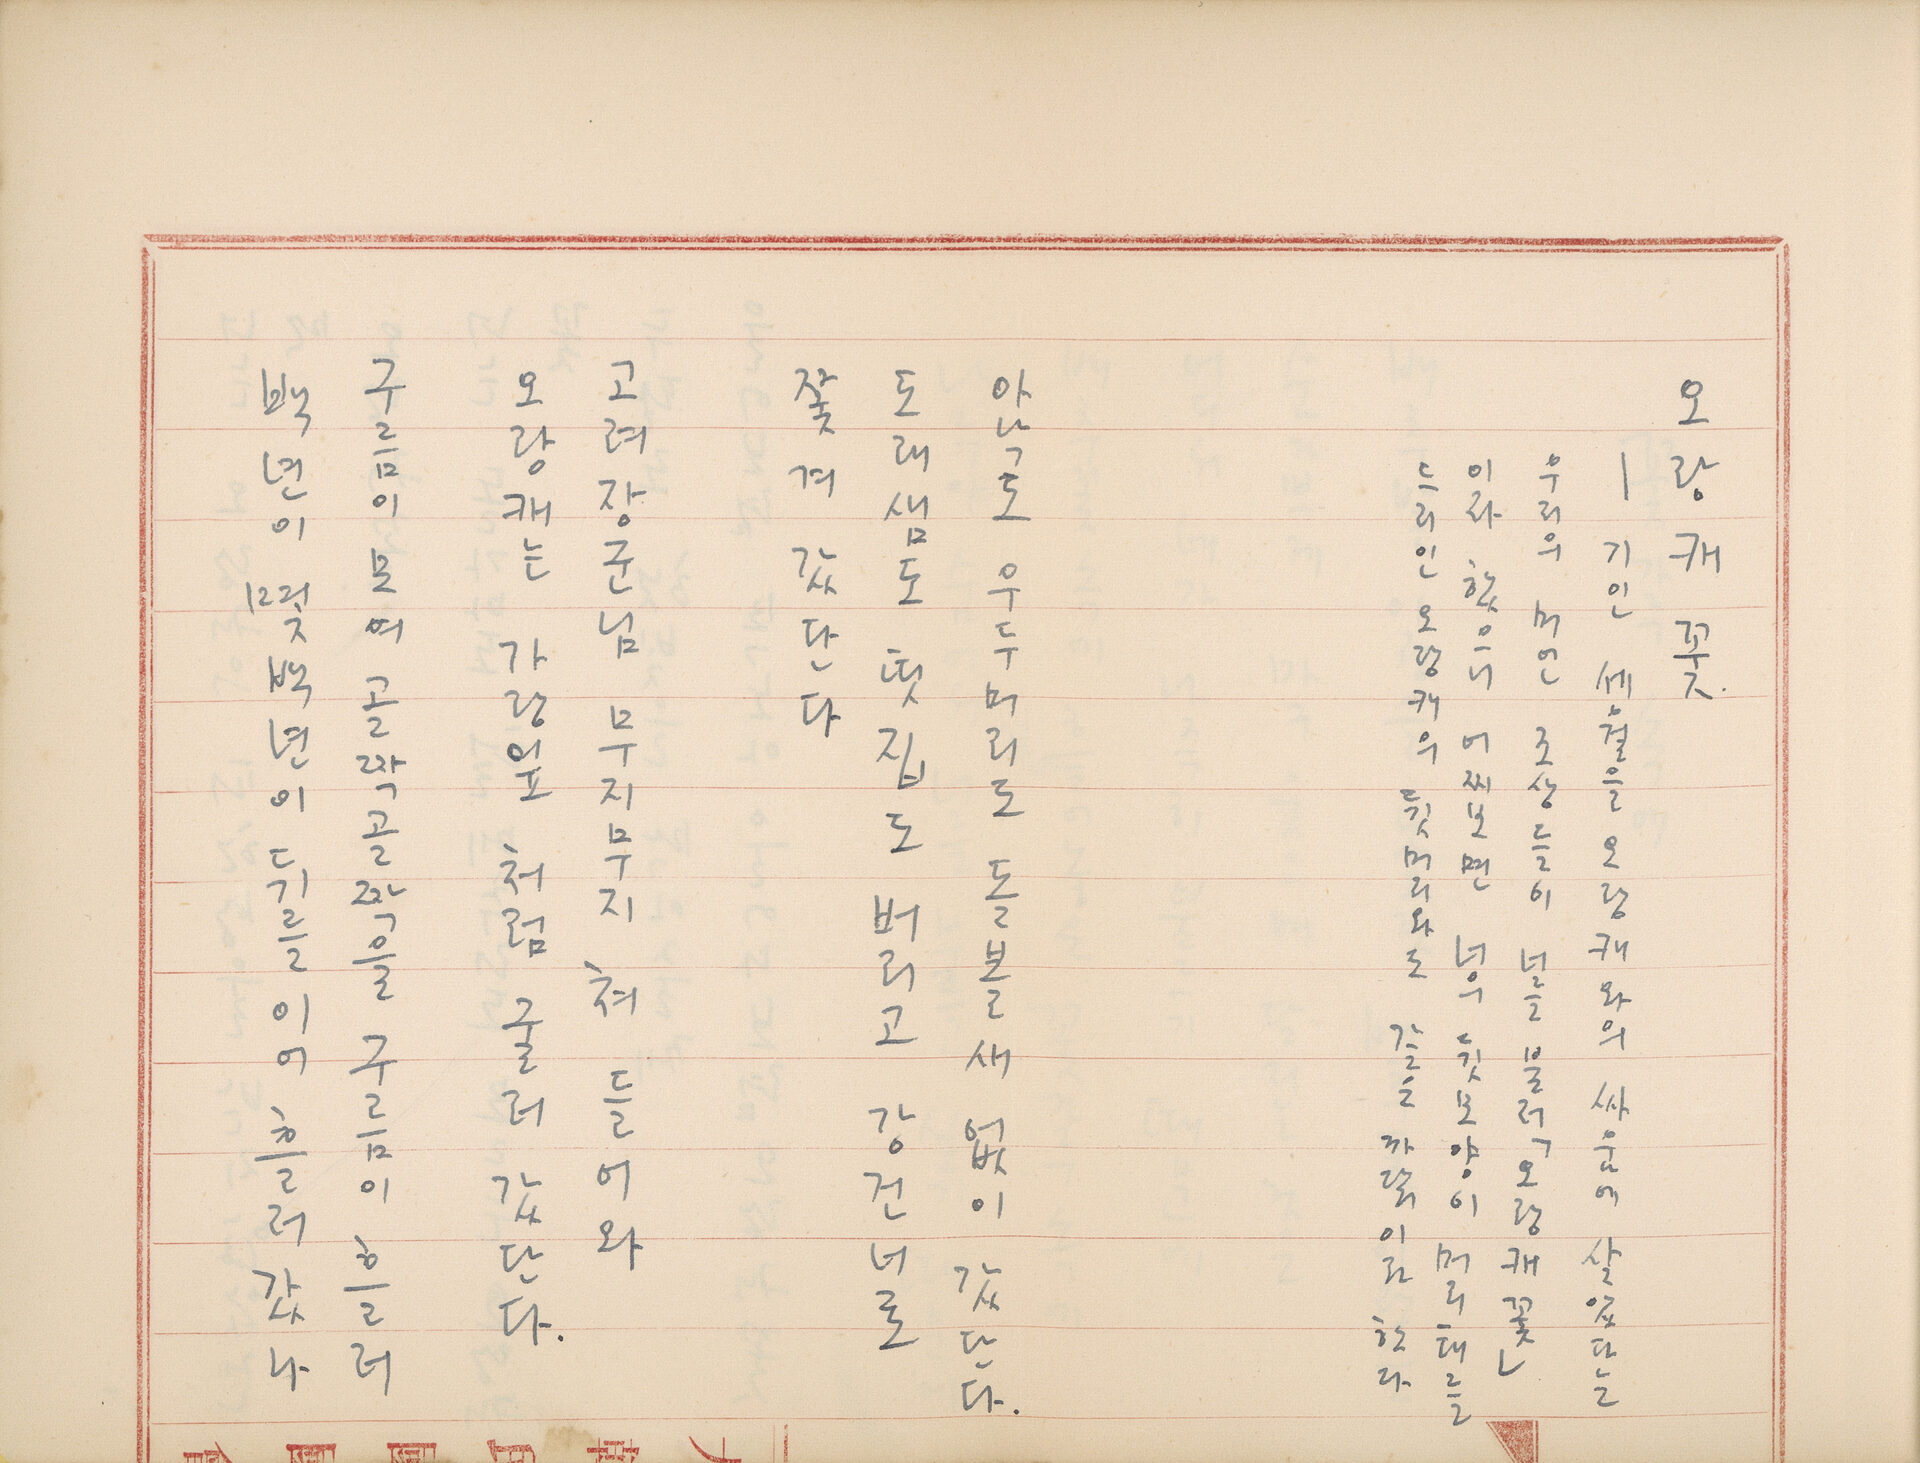 오랑캐꽃.
— 기인 세월을 오랑캐와의 싸움에 살았다는
우리의 머언 조상들이 너를 불러 「오랑캐꽃」
이라 했으니 어찌보면 너의 뒷모양이 머리태를
드리인 오랑캐의 뒷머리와도 같은 까닭이라 한다
안악도 우두머리도 돌볼새 없이 갔단다.
도래샘도 띳집도 버리고 강건너로
쫓겨 갔단다
고려장군님 무지무지 쳐 들어와
오랑캐는 가랑잎 처럼 굴러 갔단다.
구름이 모여 골짝골짝을 구름이 흘러
백년이 몇백년이 뒤를 이어 흘러 갔나